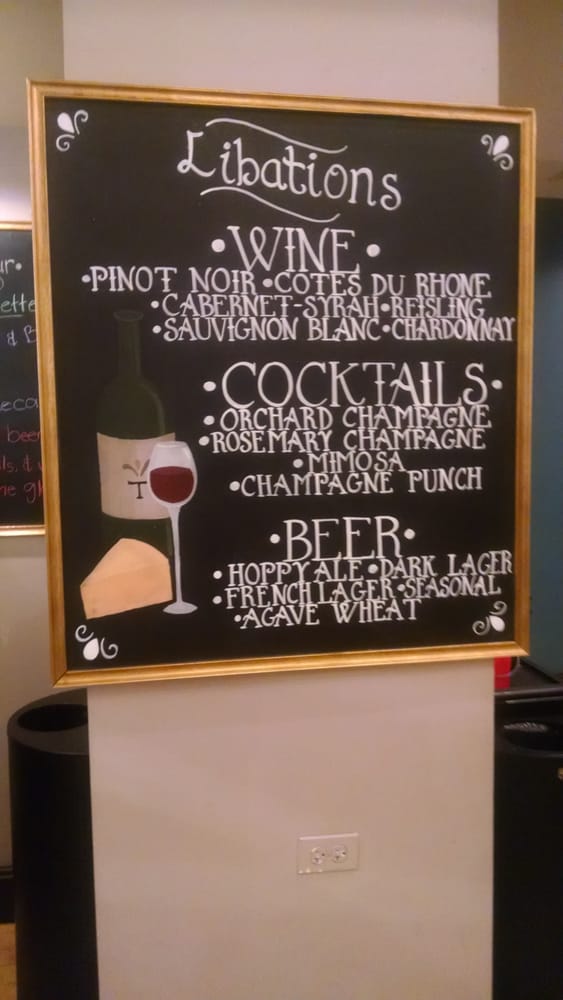 Libations
•WINE•
•PINOT NOIR •COTES DU RHONE
•CABERNET-SYRAH•REISLING
•SAUVIGNON BLANC•CHARDONNAY
•COCKTAILS•
•ORCHARD CHAMPAGNE
•ROSEMARY CHAMPAGNE
•MIMOSA
•CHAMPAGNE PUNCH
•BEER•
•HOPPY ALE •DARK LAGER
•FRENCH LAGER•SEASONAL
•AGAVE WHEAT
T
beer